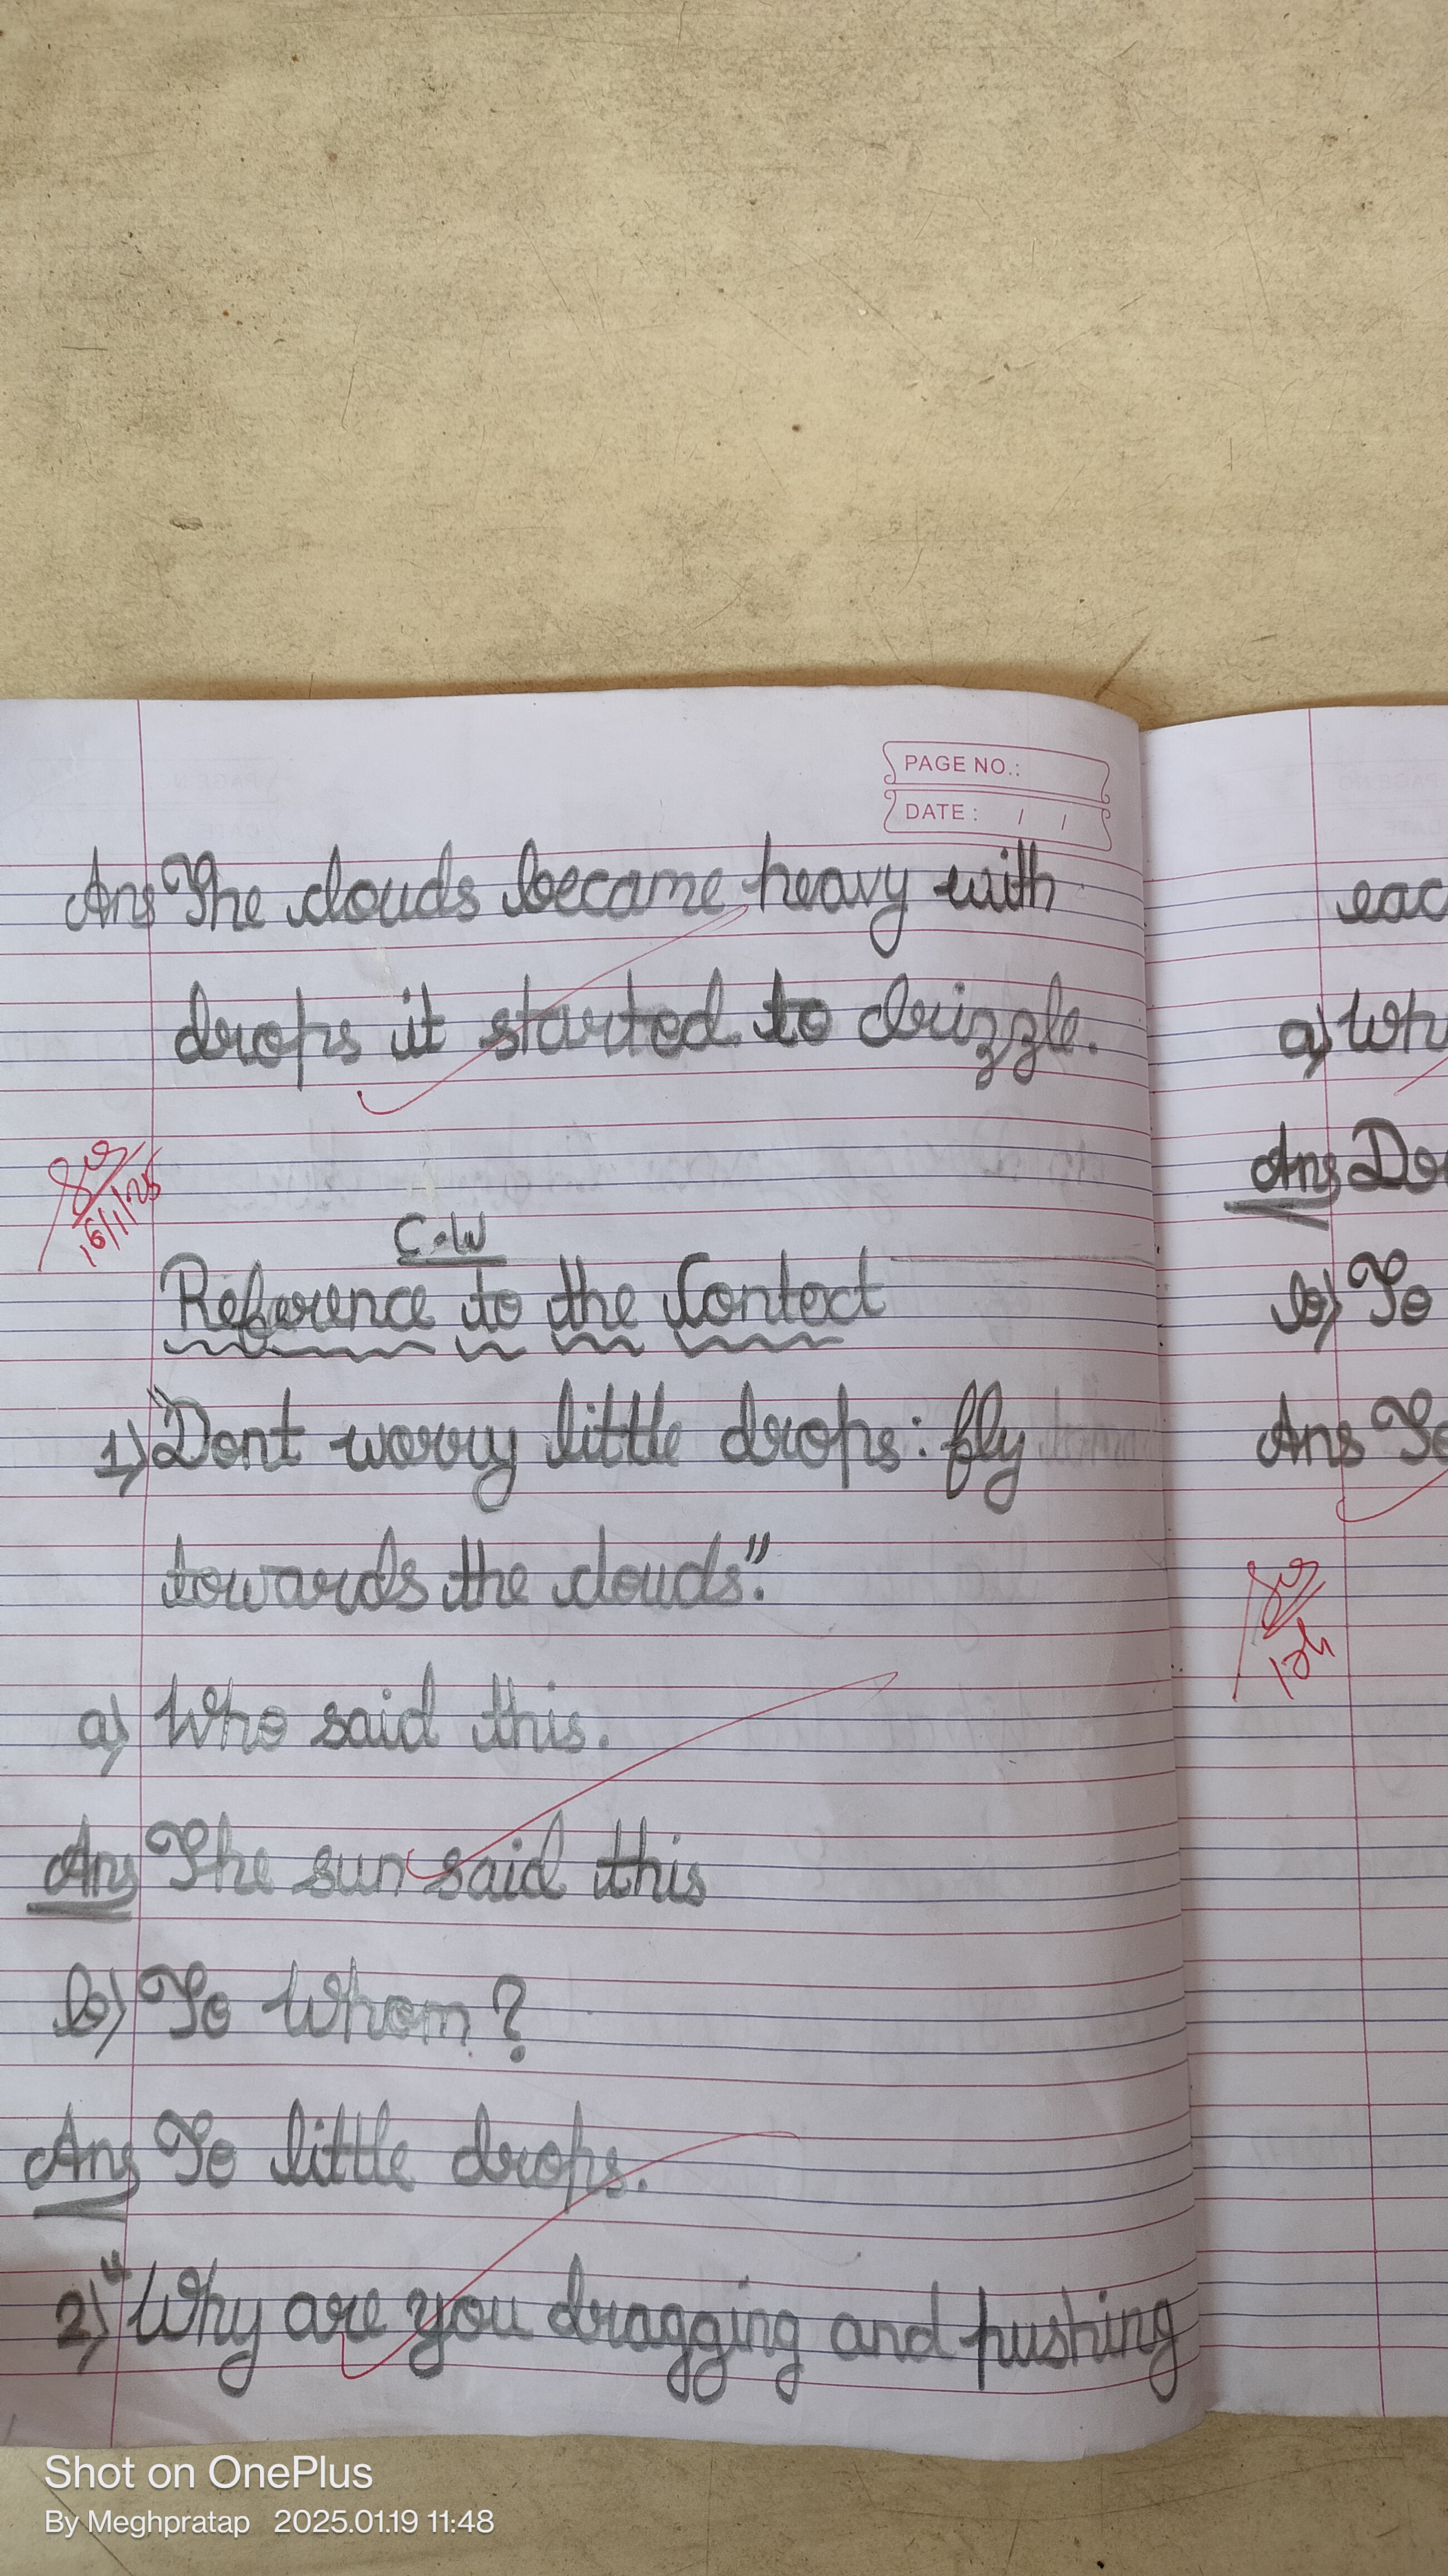 PAGE NO.:
DATE : / /
Ans The clouds became heavy with
drops it started to drizzle.
16/1/25
C.W
Reference to the Context
1) "Dont worry little drops: fly
towards the clouds."
a) Who said this.
Ans The sun said this
b) To Whom ?
Ans To little drops.
2) "Why are you dragging and pushing
eac
a) Wh
Ans Do
b) To
Ans To
Shot on OnePlus
By Meghpratap 2025.01.19 11:48